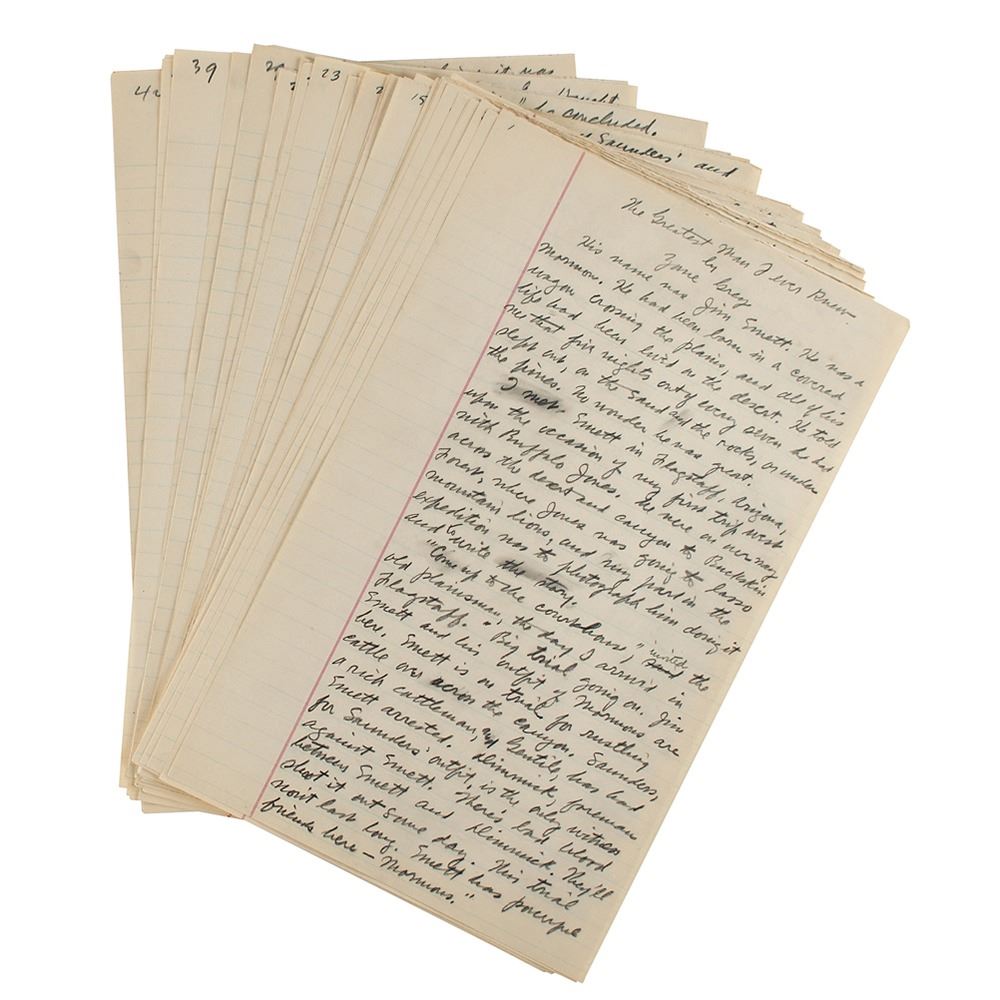 42
39
29
23
2
15
1
it was
thought
" he concluded.
Saunders' and
The Greatest Man I ever Knew
by
Zane Grey
His name was Jim Emett. He was a
Mormon. He had been born in a covered
wagon crossing the plains, and all of his
life had been lived on the desert. He told
me that five nights out of every seven he had
slept out, on the sand and the rocks, or under
the pines. No wonder he was great.
I met Emett in Flagstaff, Arizona,
upon the occasion of my first trip west
with Buffalo Jones. We were on our way
across the desert and canyon to Buckskin
Forest, where Jones was going to lasso
mountain lions, and my part in the
expedition was to photograph him doing it
and to write the story.
"Come up to the courthouse," invited the
old plainsman, the day I arrived in
Flagstaff. "Big trial going on. Jim
Emett and his outfit of Mormons are
here. Emett is on trial for rustling
cattle over across the canyon. Saunders,
a rich cattleman, and Gentile, has had
Emett arrested. Dimmick, foreman
for Saunders' outfit, is the only witness
against Emett. There's bad blood
between Emett and Dimmick. They'll
shoot it out some day. This trial
won't last long. Emett has powerful
friends here — Mormons."